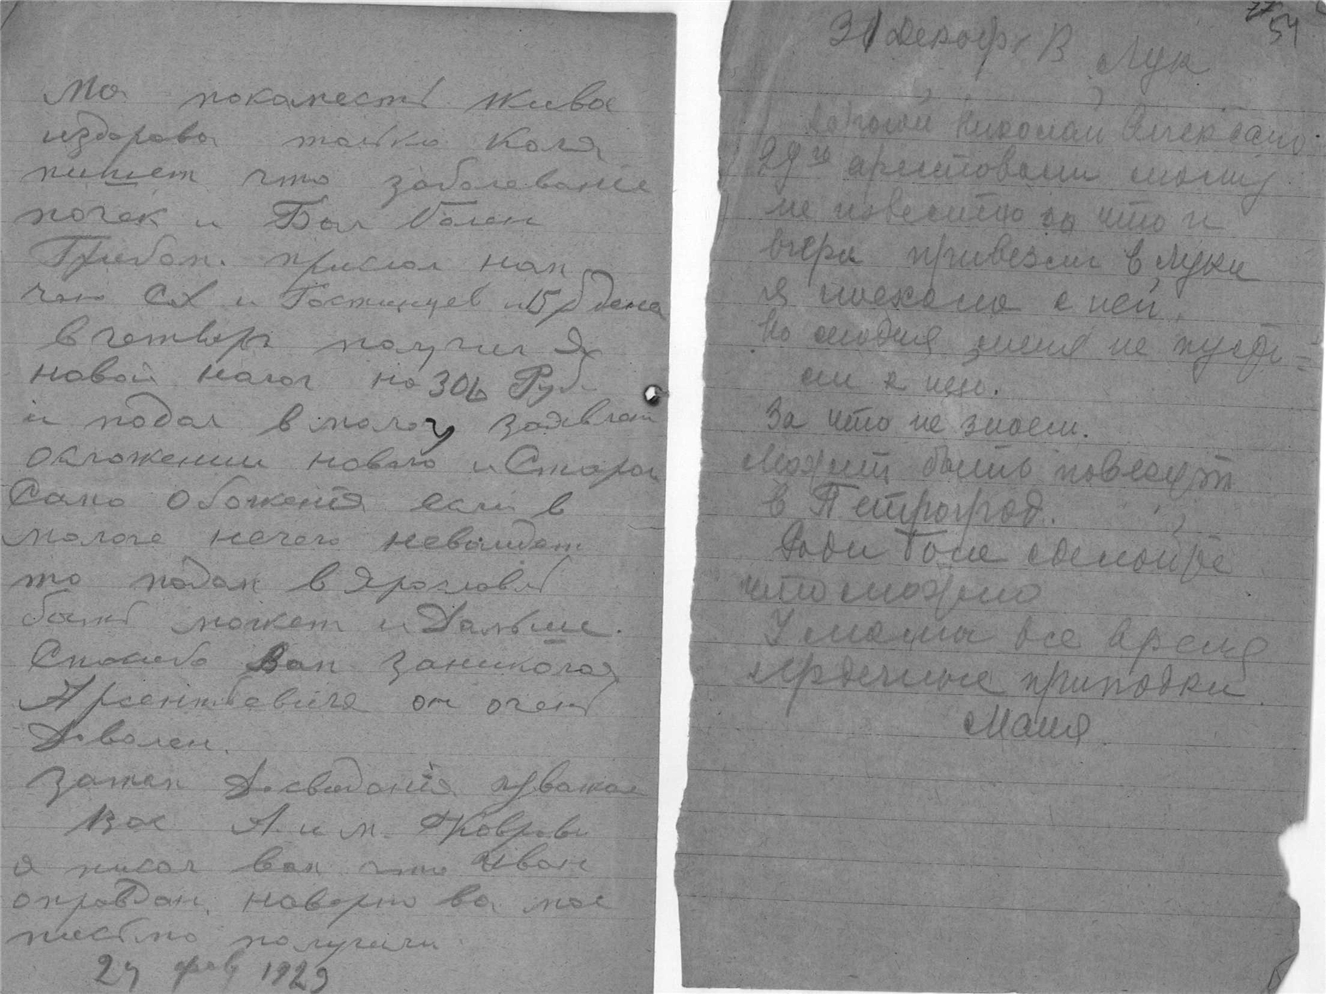 Мы покаместь живы
издоровы толко Коля
пишет что заболевание
почек и Был болен
Грибан. прислал нам
чаю Сах и Гостинцев и 15 р дена
в четверг получил Я
новой налог на 306 Руб
и подал в мологу заявлен
обложении новаго и Старог
Само обложения если в
мологе нечего невыидет
то подам в Ярославль
быть может и Дальше.
Спасибо Вам заниколая
Арсентьевича он очень
Доволен.
Затем Досвидания уважаю
Вас А и М.
я писал вам что Иван
оправдан. наверно вы мое
письмо получили.
24 фев 1929
54
31 декабря В. Лук
Дорогой Николай Александ
29го арестовали маму
не известно за что и
вчера привезли в Луки
я поехала с ней.
Но сегодня меня не пусти=
ли к ней.
За что не знаем.
Может быть повезут
в Петроград.
Ради бога сделайте
что можно
У мамы все время
сердечные припадки
Маня